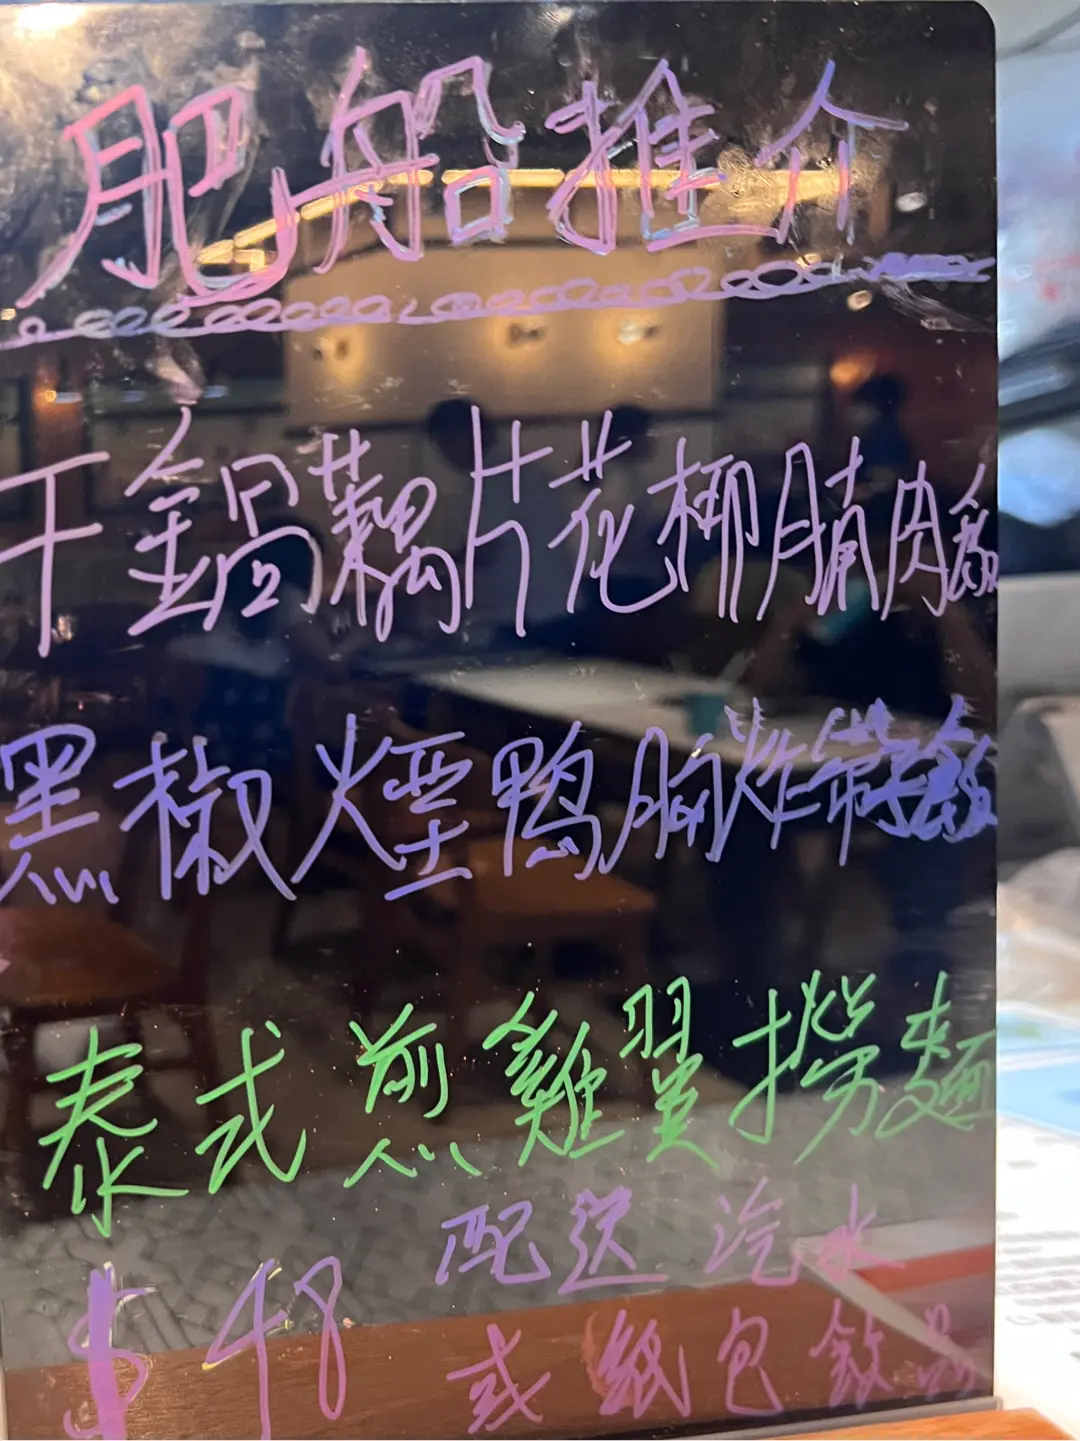 肥船推介
干鍋藕片花椰腩肉飯
黑椒煙鴨胸炸帶子飯
泰式煎雞翼撈麵
$48 配送汽水
或紙包飲品